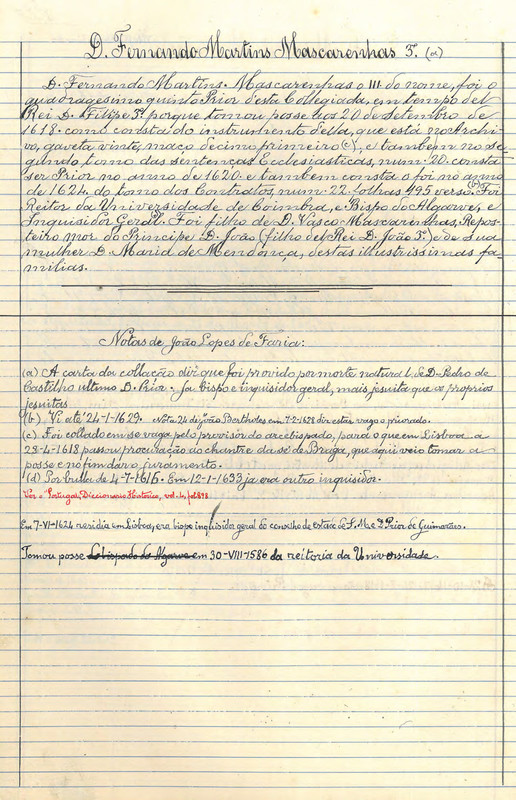 D. Fernando Martins Mascarenhas 3º. (a)
D. Fernando Martins Mascarenhas o III do nome, foi o
quadragesimo quinto Prior d'esta Collegiada, em tempo del
Rei D. Filipe 3º porque tomou posse aos 20 de Setembro de
1618. como consta do instrumento della, que está no Archi-
vo, gaveta vinte, maço decimo primeiro (c), e tambem no se-
gundo, tomo das sentenças Ecclesiasticas, num. 20. consta
ser Prior no anno de 1620. e tambem consta o foi no anno
de 1624. do tomo dos Contratos, num. 22. folhas 495 verso. (b) Foi
Reitor da Universidade de Coimbra, e Bispo do Algarve, e
Inquisidor Geral (d). Foi filho de D. Vasco Mascarenhas, Repos-
teiro mor do Principe D. João (filho del Rei D. João 3º.) e de sua
mulher D. Maria de Mendonça, destas illustrissimas fa-
milias.
Notas de João Lopes de Faria:
(a) A carta da collação diz que foi provido por morte natural de D. Pedro de
Castilho ultimo D. Prior. foi bispo e inquisidor geral, mais jesuita que os proprios
jesuitas
(b) Vi até 24-1-1629. Nota 24 de João Bertholes em 7-2-1628 diz estar vago o priorado.
(c) Foi collado em se vaga pelo provisor do arcebispado, para o que em Lisboa a
28-4-1618 passou procuração do chantre da sé de Braga, que aqui veio tomar a
posse e no fim dar o juramento.
(d) Por bula de 4-7-1616. Em 12-1-1633 ja era outro inquisidor.
Ver o Portugal, Diccionario Historico, vol. 4, pag. 898
Em 7-VI-1624 residia em Lisboa, era bispo inquisidor geral do conselho de estado de S. M. e D. Prior de Guimarães.
Tomou posse do bispado do Algarve em 30-VIII-1586 da reitoria da Universidade.